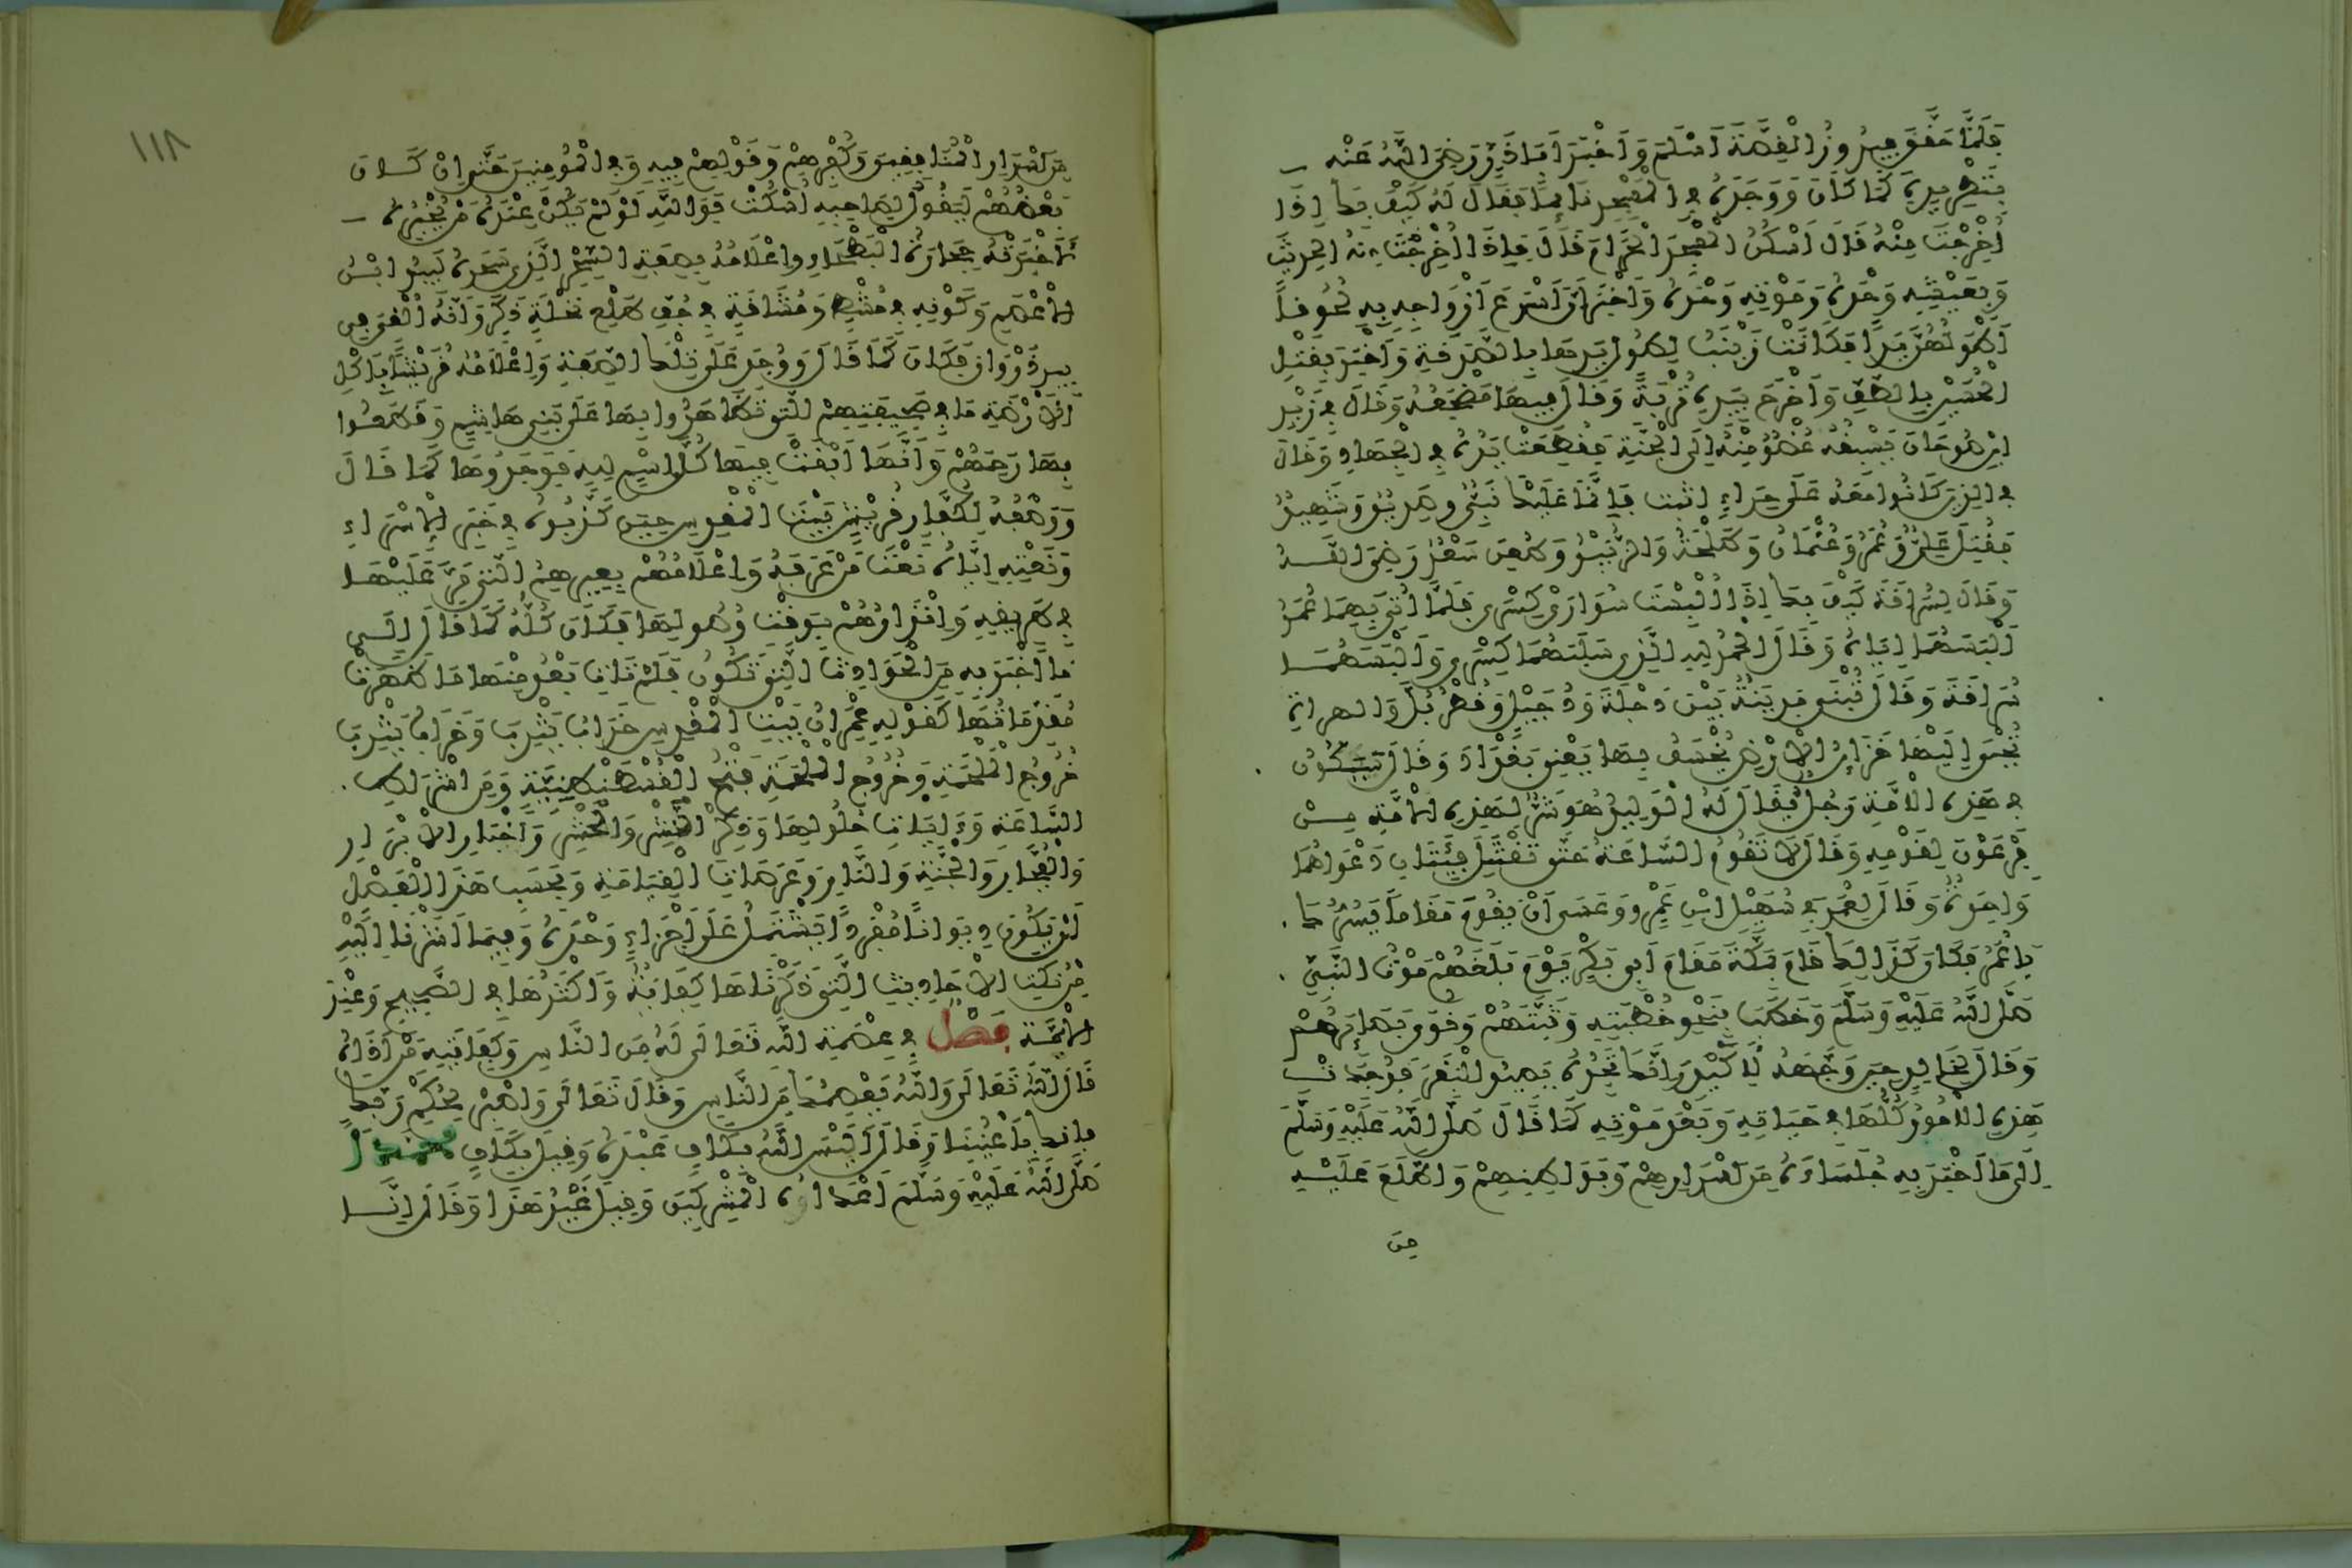 فلما حقق فيروز القصة أسلم وأخبر أبا ذر رضي الله عنه
بتطريده كما كان ووجده في المسجد نائما فقال له كيف بك إذا
أخرجت منه قال أسكن المسجد الحرام قال فإذا أخرجت منه الحديث
وبعيشه وحده وموته وحده وأخبر أن أسرع أزواجه به لحوقا
أطولهن يدا فكانت زينب لطول يدها بالصدقة وأخبر بقتل
الحسين بالطف وأخرج بيده تربة وقال فيها مضجعه وقال في زيد
ابن صوحان يسبقه عضو منه إلى الجنة فقطعت يده في الجهاد وقال
في الذين كانوا معه على حراء اثبت فإنما عليك نبي وصديق وشهيد
فقتل علي وعمر وعثمان وطلحة والزبير وطعن سعد رضي الله
وقال لسراقة كيف بك إذا ألبست سواري كسرى فلما أتي بهما عمر
ألبسهما إياه وقال الحمد لله الذي سلبهما كسرى وألبسهما
سراقة وقال تبنى مدينة بين دجلة ودجيل وقطربل والصراة
تجبى إليها خزائن الأرض يخسف بها يعني بغداد وقال سيكون
في هذه الأمة رجل يقال له الوليد هو شر لهذه الأمة من
فرعون لقومه وقال لا تقوم الساعة حتى تقتتل فئتان دعواهما
واحدة وقال لعمر في سهيل ابن عمرو وعسى أن يقوم مقاما يسرك
يا عمر فكان كذلك قام بمكة مقام أبي بكر يوم بلغهم موت النبي
صلى الله عليه وسلم وخطب بنحو خطبته وثبتهم وقوى بصائرهم
وقال لخالد حين وجهه لأكيدر إنك تجده يصيد البقر فوجدت
هذه الأمور كلها في حياته وبعد موته كما قال صلى الله عليه وسلم
إلى ما أخبر به جلساءه من أسرارهم وبواطنهم واطلع عليه
من
١١٨
من أسرار المنافقين وكفرهم وقولهم فيه وفي المؤمنين حتى إن كان
بعضهم ليقول لصاحبه اسكت فوالله لو لم يكن عنده من يخبره
لأخبرته حجارة البطحاء وإعلامه بصفة السحر الذي سحره لبيد ابن
الأعصم وكونه في مشط ومشاقة في جف طلع نخلة ذكر وأنه ألقي في
بير ذروان فكان كما قال ووجد على تلك الصفة وإعلامه قريشا بأكل
الأرضة ما في صحيفتهم التي تظاهروا بها على بني هاشم وقطعوا
بها رحمهم وأنها أبقت فيها كل اسم لله فوجدوها كما قال
ووصفه لكفار قريش بيت المقدس حين كذبوه في خبر الإسراء
ونعته إياه نعت من عرفه وإعلامهم بعيرهم التي مر عليها
في طريقه وإنذارهم بوقت وصولها فكان كله كما قال إلى
ما أخبر به من الحوادث التي تكون فلم تات بعد منها ما ظهرت
مقدماتها كقوله عمران بيت المقدس خراب يثرب وخراب يثرب
خروج الملحمة وخروج الملحمة فتح القسطنطينية ومن أشراط
الساعة وءايات حلولها وذكر النشر والحشر وأخبار الأبرار
والفجار والجنة والنار وعرصات القيامة وبحسب هذا الفصل
أن يكون ديوانا مفردا يشتمل على أجزاء وحده وفيما أشرنا إليه
من نكت الأحاديث التي ذكرناها كفاية وأكثرها في الصحيح وعند
الأئمة فصل في عصمة الله تعالى له من الناس وكفايته من أذاه
قال الله تعالى والله يعصمك من الناس وقال تعالى واصبر لحكم ربك
فإنك بأعيننا وقال أليس الله بكاف عبده وقيل بكاف محمدا
صلى الله عليه وسلم أعداءه المشركين وقيل غير هذا وقال إنا